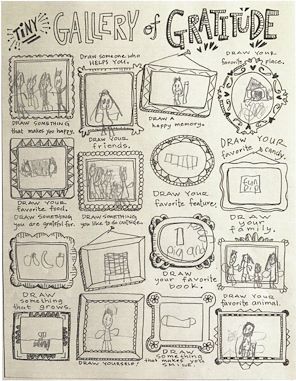 TINY GALLERY of GRATITUDE
DRAW SOMETHING
that makes you happy.
DRAW someone who
HELPS YOU.
DRAW A
happy memory.
DRAW YOUR
favorite place.
DRAW YOUR
favorite food.
DRAW YOUR
friends.
DRAW YOUR
favorite feature.
DRAW YOUR
favorite candy.
FUN
DIP
DRAW SOMETHING
you are grateful for.
DRAW SOMETHING
you like to do outside.
DRAW
your favorite
book.
DRAW
your
family.
DRAW
something
that grows.
DRAW YOURSELF!
DRAW
something
that makes you
SHINE.
DRAW YOUR
favorite animal.